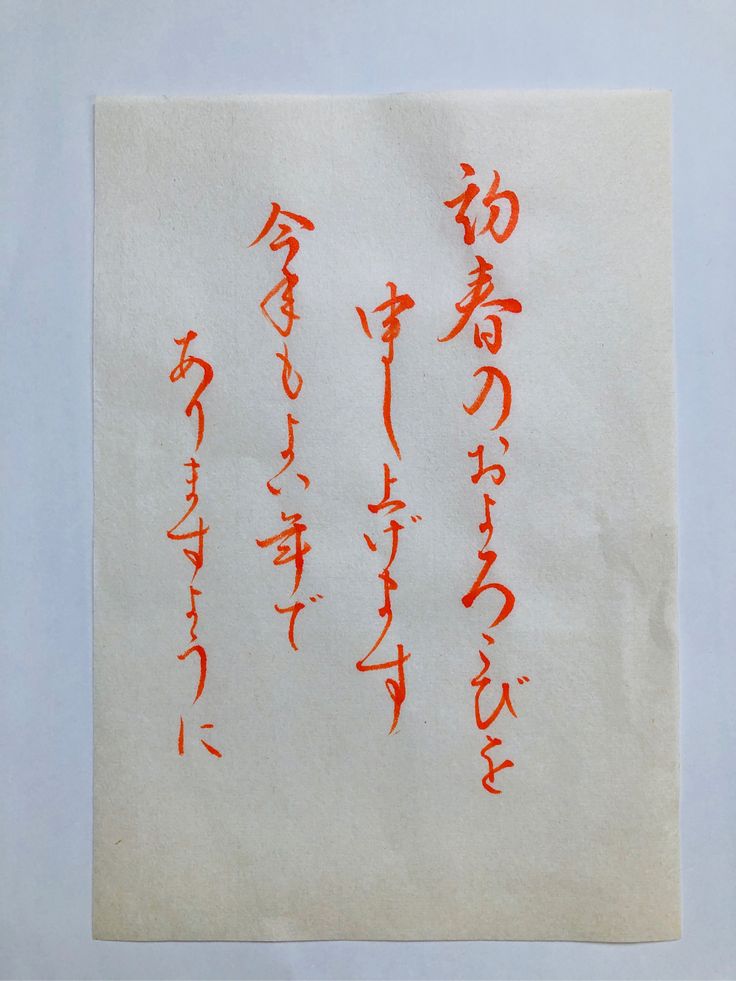 初春のおよろこびを
申し上げます
今年もよい年で
ありますように